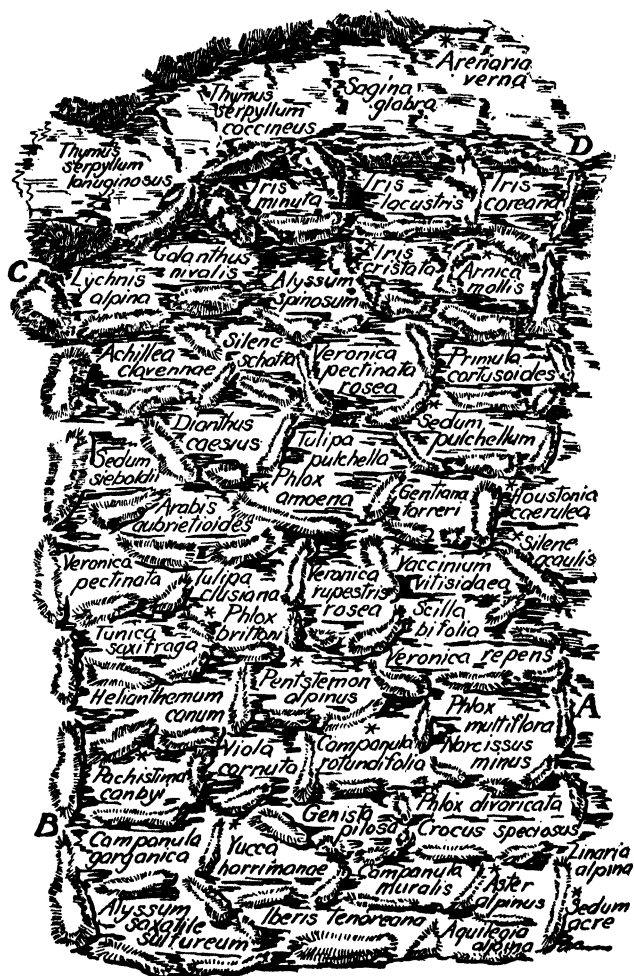 * Arenaria
verna
Thymus
serpyllum
coccineus
Sagina
glabra
Thymus
serpyllum
lanuginosus
D
Iris
minuta
Iris
lacustris
Iris
coreana
C
Galanthus
nivalis
* Iris
cristata
Lychnis
alpina
Alyssum
spinosum
*
Arnica
mollis
Achillea
clavennae
Silene
schafta
Veronica
pectinata
rosea
Primula
cortusoides
Dianthus
caesius
Tulipa
pulchella
Sedum
pulchellum
Sedum
sieboldii
* Phlox
amoena
Gentiana
farreri
* Houstonia
caerulea
Arabis
aubrietioides
* Silene
acaulis
Veronica
pectinata
Tulipa
clusiana
Veronica
rupestris
rosea
* Vaccinium
vitisidaea
* Phlox
brittoni
Scilla
bifolia
Tunica
saxifraga
Veronica repens
* Pentstemon
alpinus
Helianthemum
canum
Phlox
multiflora
Narcissus
minus
A
* Pachistima
canbyi
Viola
cornuta
* Campanula
rotundifolia
Phlox divaricata
Crocus speciosus
B
Genista
pilosa
Campanula
garganica
* Yucca
harrimanae
Campanula
muralis
* Aster
alpinus
Linaria
alpina
Alyssum
saxatile
sulfureum
Iberis Tenoreana
Aquilegia
alpina
* Sedum
acre